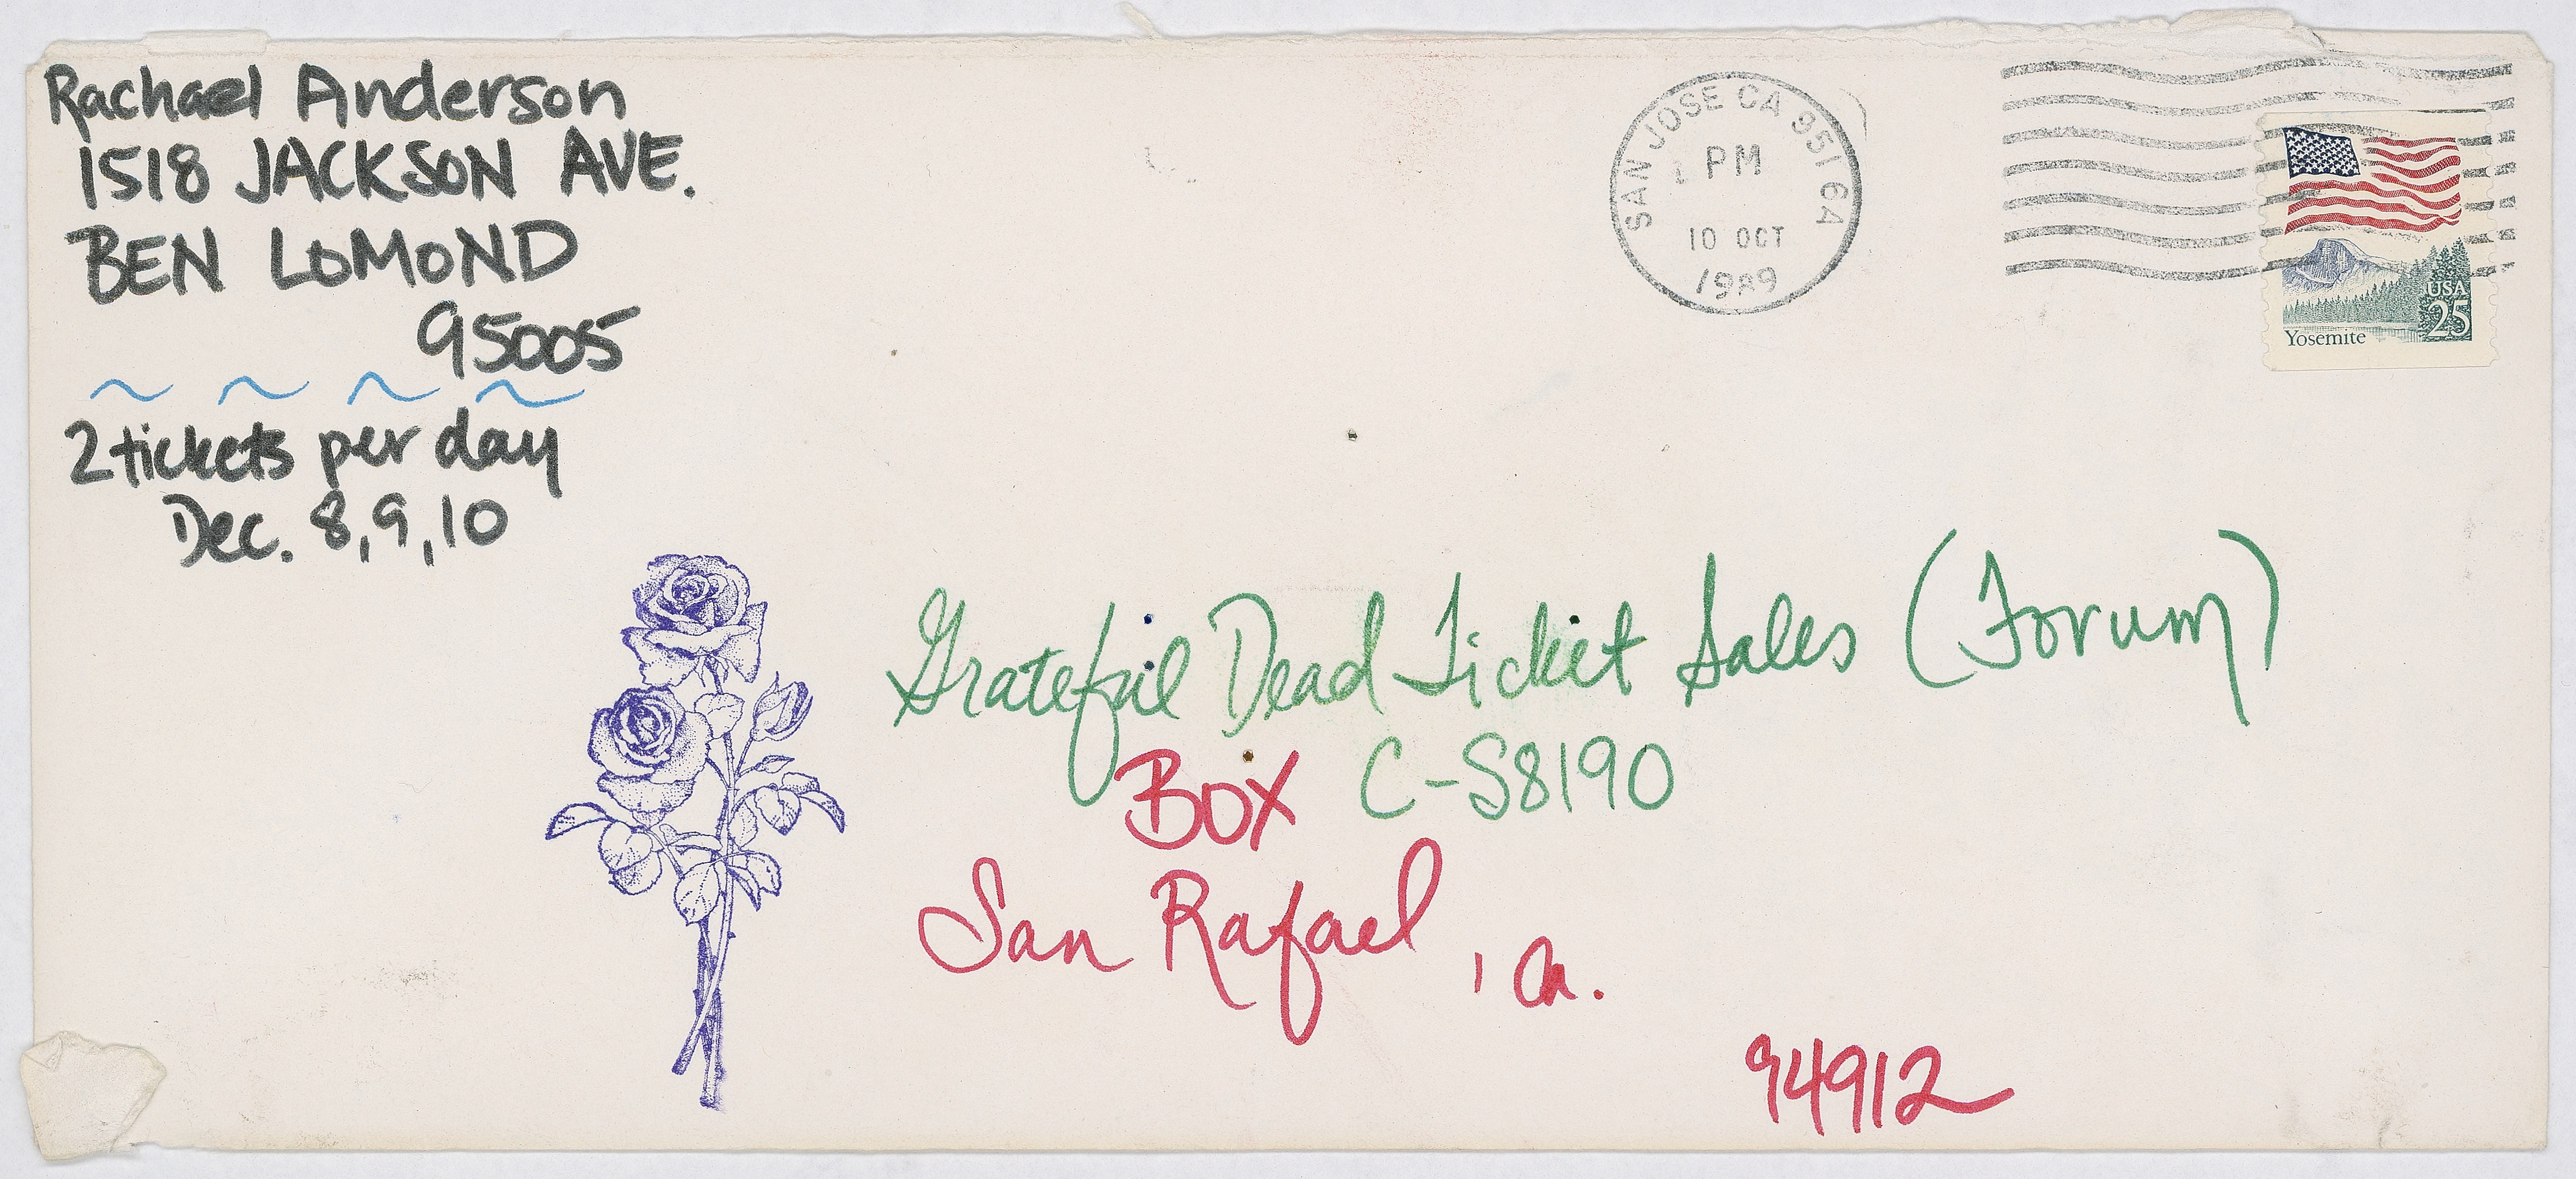 Rachael Anderson
1518 JACKSON AVE.
BEN LOMOND
95005
2 tickets per day
Dec. 8, 9, 10
SAN JOSE CA 951 6A
PM
10 OCT
1989
USA
25
Yosemite
Grateful Dead Ticket Sales (Forum)
BOX C-S8190
San Rafael, Ca.
94912